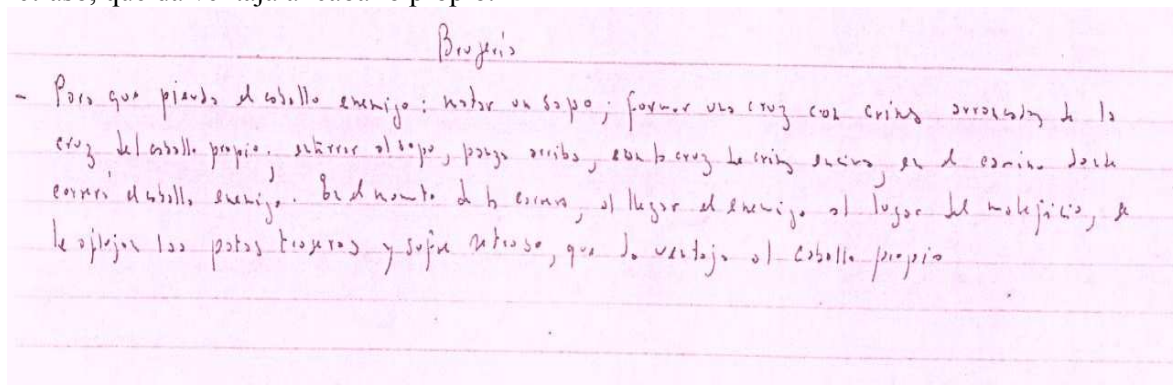 retraso, que da ventaja al caballo propio.
Brujería
- Para que pierda el caballo enemigo: matar un sapo; formar una cruz con crines arrancadas de la
cruz del caballo propio; enterrar al sapo, panza arriba, con la cruz de crines encima, en el camino donde
correrá el caballo enemigo. En el momento de la carrera, al llegar el enemigo al lugar del maleficio, se
le aflojan las patas traseras y sufre retraso, que da ventaja al caballo propio